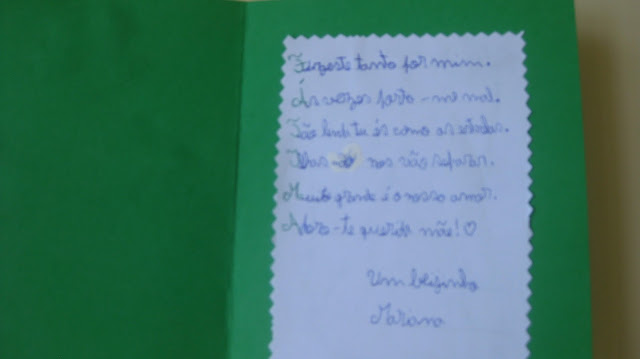 Fizeste tanto por mim.
Às vezes porto-me mal.
Tão linda tu és como as estrelas.
Ilhas nos vão separar.
Muito grande é o nosso amor.
Adoro-te querida mãe!♡
Um beijinho
Mariana